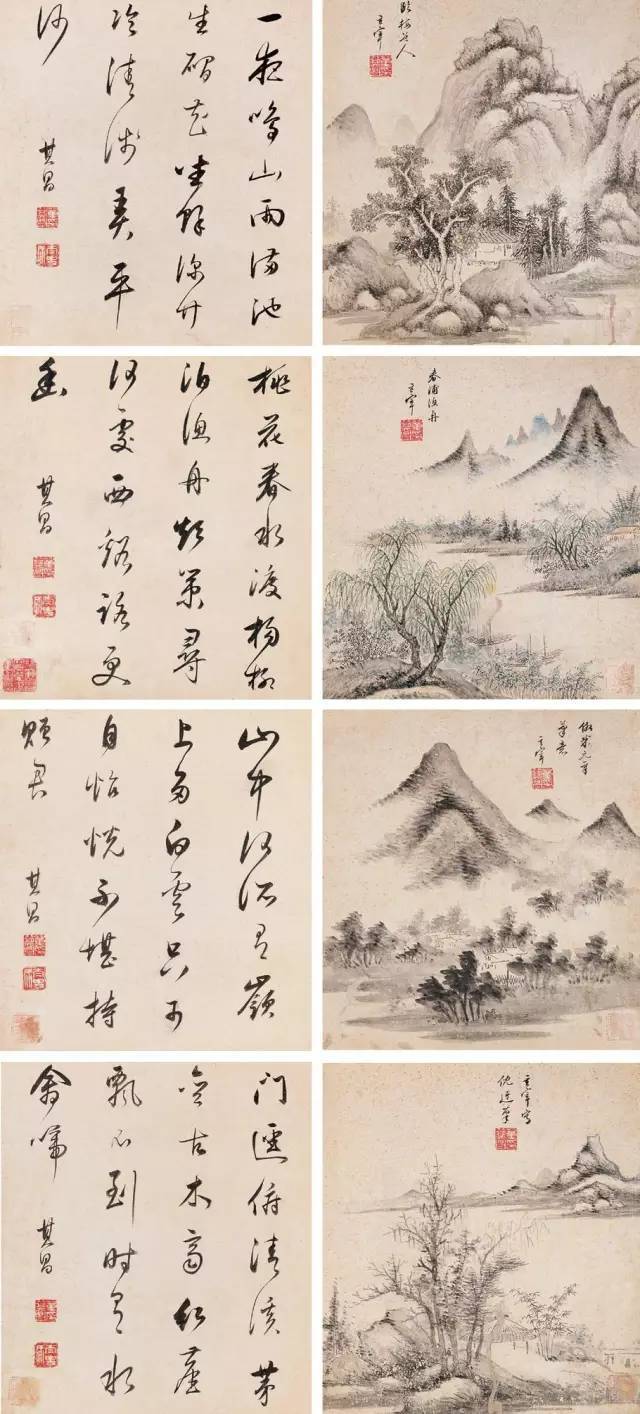 臨梅道人
玄宰
一夜鳴山雨滿池
生碧花哇深竹
冷清淺弄平
沙
其昌
春浦漁舟
玄宰
桃花春水渡楊柳
泊漁舟策尋
何處西谿路更
幽
其昌
倣米元章
筆意
玄宰
山中何所有嶺
上多白雲只可
自怡悅不堪持
贈君
其昌
玄宰寫
倪迂筆
門逕俯清溪茅
簷古木齊紅塵
飄不到時有水
禽啼
其昌